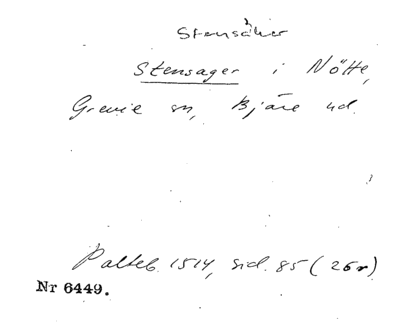 Stensåker
Stensager i Nötte,
Grevie sn, Bjäre hd.
Palteb. 1514, sid. 85 (26r)
Nr 6449.